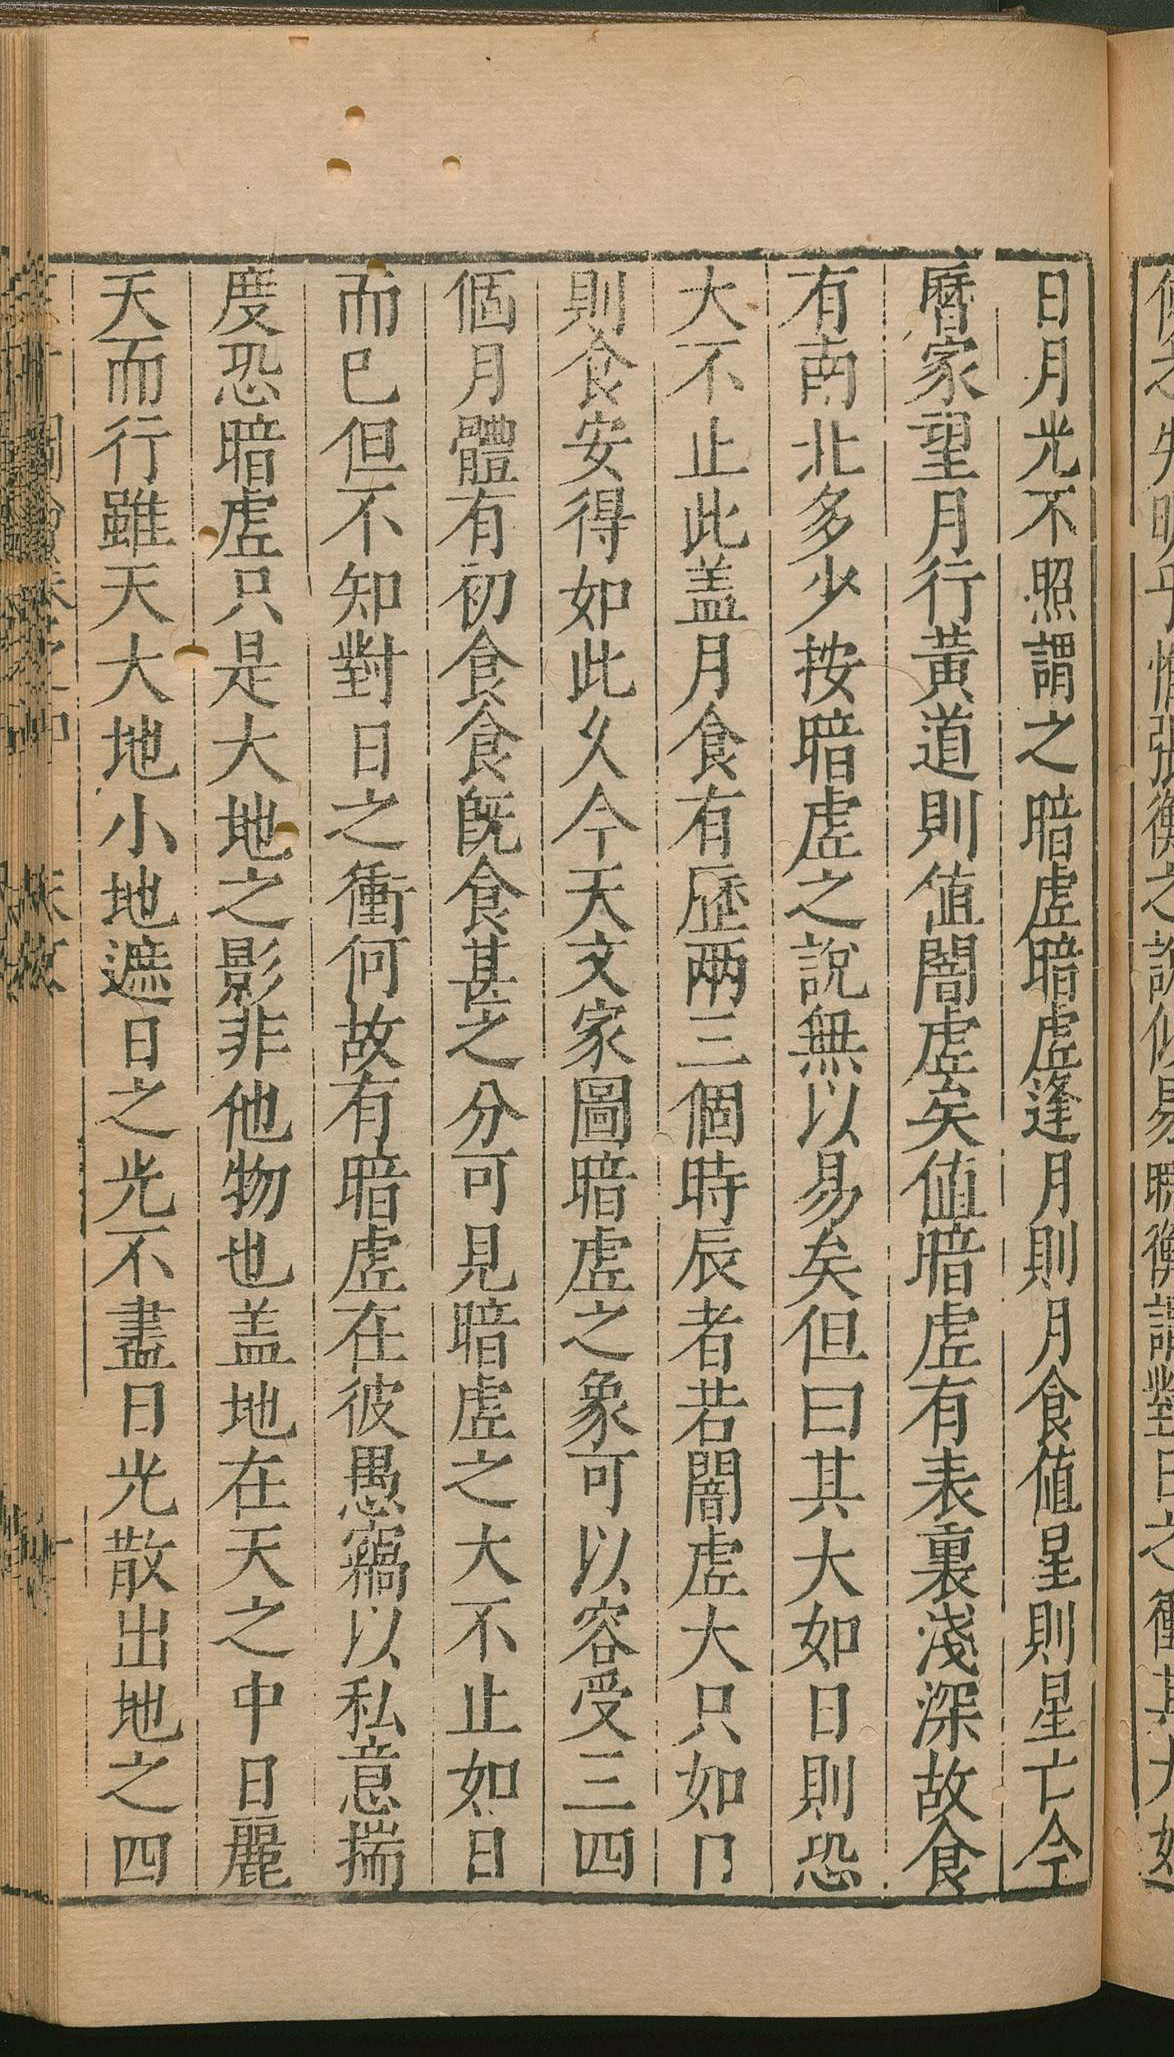 日月光不照謂之暗虛暗虛逢月則月食值星則星亡今
曆家望月行黃道則值闇虛矣值暗虛有表裏淺深故食
有南北多少按暗虛之說無以易矣但曰其大如日則恐
大不止此盖月食有歷兩三個時辰者若闇虛大只如
則食安得如此久今天文家圖暗虛之象可以容受三四
個月體有初食食既食甚之分可見暗虛之大不止如日
而巳但不知對日之衝何故有暗虛在彼愚竊以私意揣
度恐暗虛只是大地之影非他物也盖地在天之中日麗
天而行雖天大地小地遮日之光不盡日光散出地之四